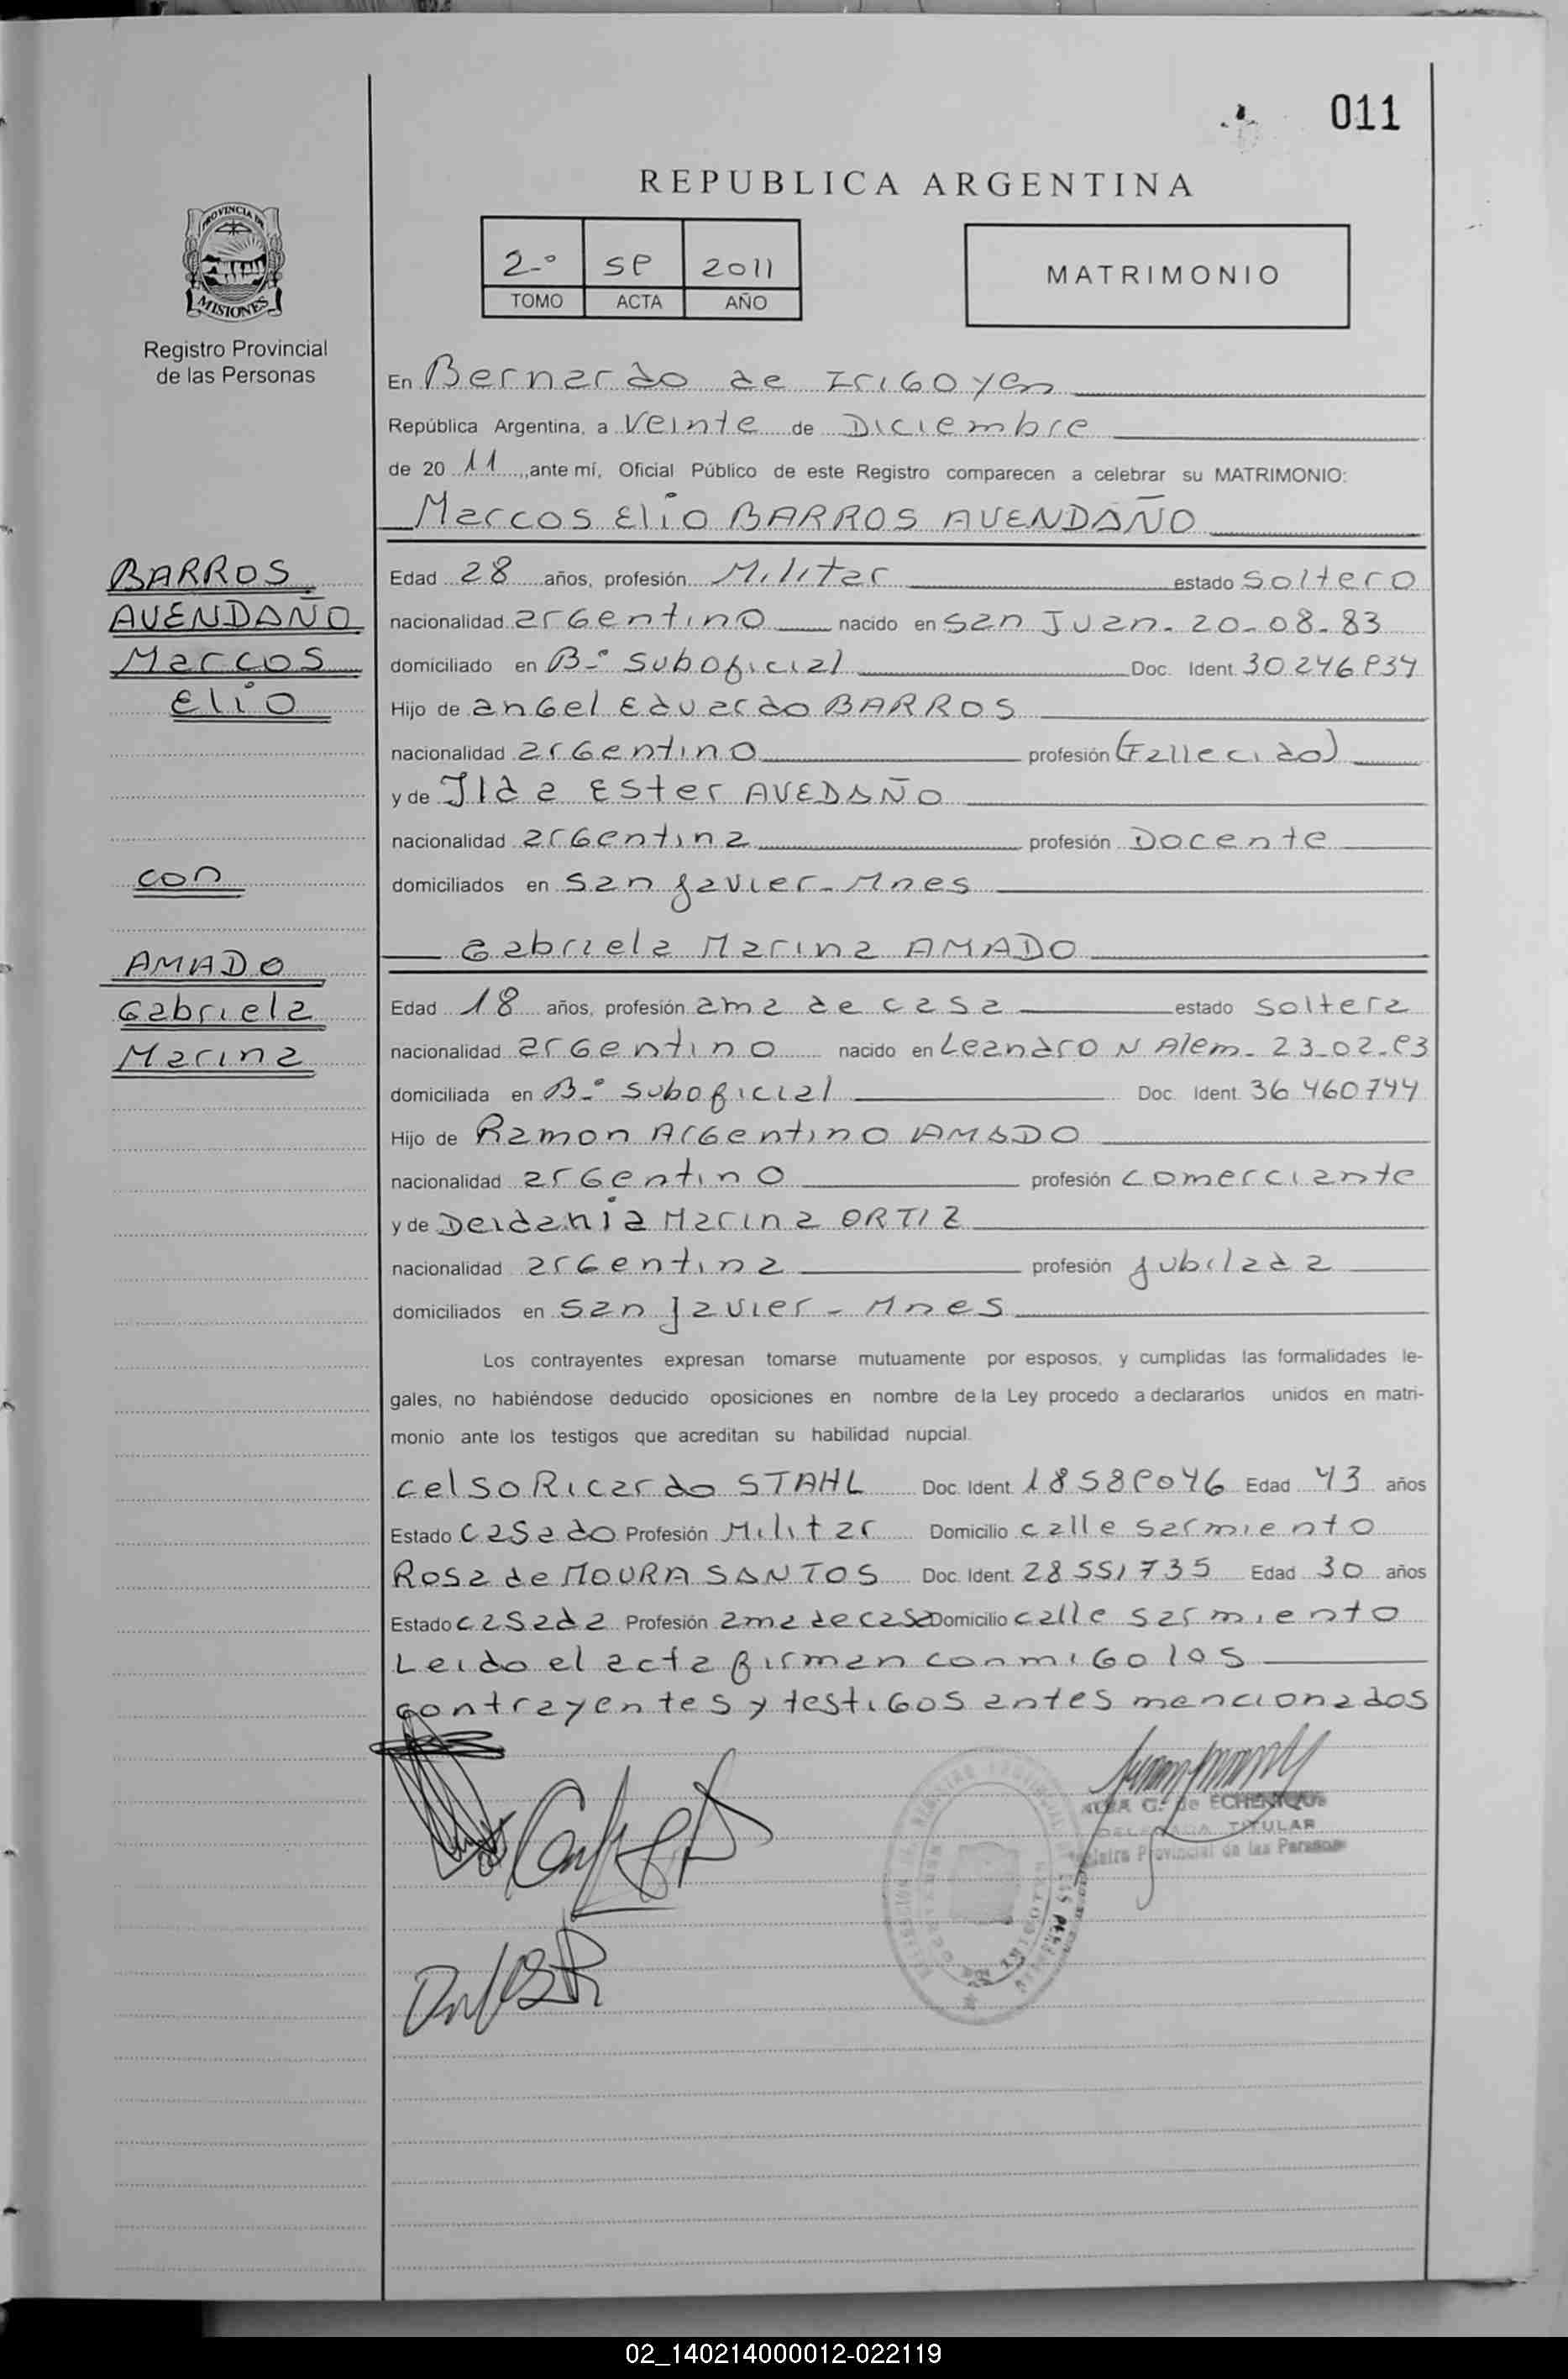 011
REPUBLICA ARGENTINA
2-º 59 2011
TOMO ACTA AÑO
MATRIMONIO
PROVINCIA DE
MISIONES
Registro Provincial
de las Personas
En Bernardo de Irigoyen
República Argentina, a Veinte de Diciembre
de 20 11, ante mí, Oficial Público de este Registro comparecen a celebrar su MATRIMONIO:
Marcos Elio BARROS AVENDAÑO
BARROS
AVENDAÑO
Marcos
Elio
con
AMADO
Gabriela
Marina
Edad 28 años, profesión Militar estado Soltero
nacionalidad argentino nacido en San Juan - 20-08-83
domiciliado en B-º Suboficial Doc. Ident. 30.246.934
Hijo de angel Eduardo BARROS
nacionalidad argentino profesión (Fallecido)
y de Ilda Ester AVEDAÑO
nacionalidad argentina profesión Docente
domiciliados en San Javier - Mnes
Gabriela Marina AMADO
Edad 18 años, profesión ama de casa estado Soltera
nacionalidad argentino nacido en Leandro N Alem - 23-02-93
domiciliada en B-º Suboficial Doc. Ident. 36 460744
Hijo de Ramon Argentino AMADO
nacionalidad argentino profesión comerciante
y de Deidania Marina ORTIZ
nacionalidad argentina profesión jubilada
domiciliados en San Javier - Mnes
Los contrayentes expresan tomarse mutuamente por esposos, y cumplidas las formalidades le-
gales, no habiéndose deducido oposiciones en nombre de la Ley procedo a declararlos unidos en matri-
monio ante los testigos que acreditan su habilidad nupcial.
Celso Ricardo STAHL Doc. Ident. 18589046 Edad 43 años
Estado Casado Profesión Militar Domicilio calle Sarmiento
Rosa de MOURA SANTOS Doc. Ident. 28551735 Edad 30 años
Estado casada Profesión ama de casa Domicilio calle Sarmiento
Leido el acta firman conmigo los
contrayentes y testigos antes mencionados
ALBA G. de ECHENIQUE
DELEGADA TITULAR
Registro Provincial de las Personas
02_140214000012-022119